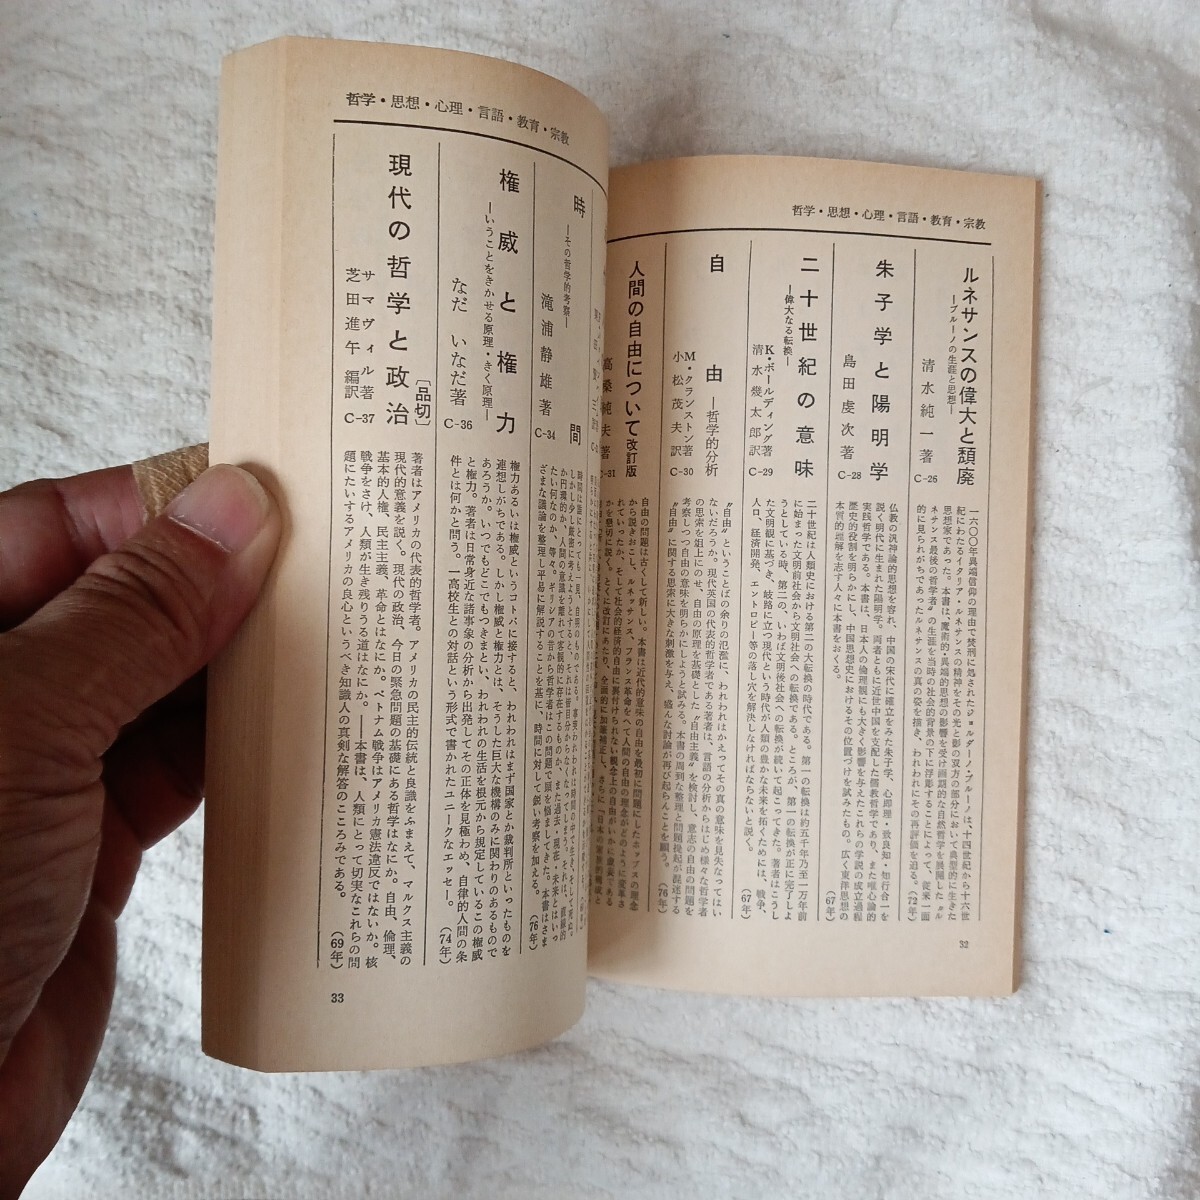 哲学・思想・心理・言語・教育・宗教
ルネサンスの偉大と頽廃
―ブルーノの生涯と思想―
清水純一著
C-26
一六〇〇年異端信仰の理由で焚刑に処されたジョルダーノ・ブルーノは、十四世紀から十六世
紀にわたるイタリア・ルネサンスの精神をその光と影の双方の部分において典型的に生きた
思想家であった。本書は、魔術的・異端的思想の影響を受け画期的な自然哲学を展開した〝ル
ネサンス最後の哲学者〟の生涯を当時の社会的背景の下に浮彫することによって、従来一面
的に見られがちであったルネサンスの真の姿を描き、われわれにその再評価を迫る。
(72年)
朱子学と陽明学
島田虔次著
C-28
仏教の汎神論的思想を容れ、中国の宋代に確立をみた朱子学、心即理・致良知・知行合一を
説く明代に生まれた陽明学。両者ともに近世中国を支配した儒教哲学であり、また唯心論的
実践哲学である。本書は、日本人の倫理観にも大きく影響を与えたこれらの学説の成立過程
歴史的役割を明らかにし、中国思想史におけるその位置づけを試みたもの。広く東洋思想の
本質的理解を志す人々に本書をおくる。
(67年)
二十世紀の意味
―偉大なる転換―
K・ボールディング著
清水幾太郎訳
C-29
二十世紀は人類史における第二の大転換の時代である。第一の転換は約五千年乃至一万年前
に始まった文明前社会から文明社会への転換である。ところが、第一の転換が正に完了しよ
うとしている時、第二の、いわば文明後社会への転換が続いて起こってきた。著者はこうし
た文明観に基づき、岐路に立つ現代という時代が人類の豊かな未来を拓くためには、戦争、
人口、経済開発、エントロピー等の落し穴を解決しなければならないと説く。
(67年)
自由
―哲学的分析
M・クランストン著
小松茂夫訳
C-30
〝自由〟ということばの余りの氾濫に、われわれはかえってその真の意味を見失なってはい
ないだろうか。現代英国の代表的哲学者である著者は、言語の分析からはじめ様々な哲学者
の思索を俎上にのせ、自由の原理を基礎とした〝自由主義〟を検討し、意志の自由の問題を
考察しつつ自由の意味を明らかにしようと試みる。本書の周到な整理と問題提起が混迷する
〝自由〟に関する思索に大きな刺激を与え、盛んな討論が再び起らんことを願う。
(76年)
人間の自由について 改訂版
高桑純夫著
C-31
自由の問題は古くて新しい。本書は近代的意味の自由を最初に問題にしたホッブスの理念
から説きおこし、ルネッサンス、フランス革命をへて人間の自由の理念がどのように変革さ
れていったか、そして社会的経済的自由に裏付けられない観念上の自由がいかに虚妄である
かを懇切に説く。とくに改訂にあたり、全面的に加筆補正し、さらに
32
哲学・思想・心理・言語・教育・宗教
時間
―その哲学的考察―
滝浦静雄著
C-34
時間は誰にとっても一見、自明のものである。事実われわれは時間の中で生き、そして死ぬ。
しかし少し厳密に考えようとすると、それは皆目分からなくなってしまう。それは、直線的
か円環的か、人間の意識を離れて客観的に存在するものか、また過去・現在・未来とはいっ
たい何なのか、等々。ギリシアの昔から哲学者はこの問題で頭を悩ましてきた。本書はさま
ざまな議論を整理し平易に解説することを基に、時間に対して鋭い考察を加える。
(76年)
権威と権力
―いうことをきかせる原理・きく原理―
なだ いなだ著
C-36
権力あるいは権威というコトバに接すると、われわれはまず国家とか裁判所といったものを
連想しがちである。しかし権威と権力とは、そうした巨大な機構のみに関わりのあるもので
あろうか。いつでもどこでもつきまとい、われわれの生活を根元から規定しているこの権威
と権力。著者は日常身近な諸事象の分析から出発してその正体を見極わめ、自律的人間の条
件とは何かと問う。一高校生との対話という形式で書かれたユニークなエッセー。
(74年)
現代の哲学と政治
[品切]
サマヴィル著
芝田進午編訳
C-37
著者はアメリカの代表的哲学者。アメリカの民主的伝統と良識をふまえて、マルクス主義の
現代的意義を説く。現代の政治、今日の緊急問題の基礎にある哲学はなにか。自由、倫理、
基本的人権、民主主義、革命とはなにか。ベトナム戦争はアメリカ憲法違反ではないか。核
戦争をさけ、人類が生き残りうる道はなにか。――本書は、人類にとって切実なこれらの問
題にたいするアメリカの良心というべき知識人の真剣な解答のこころみである。
(69年)
33